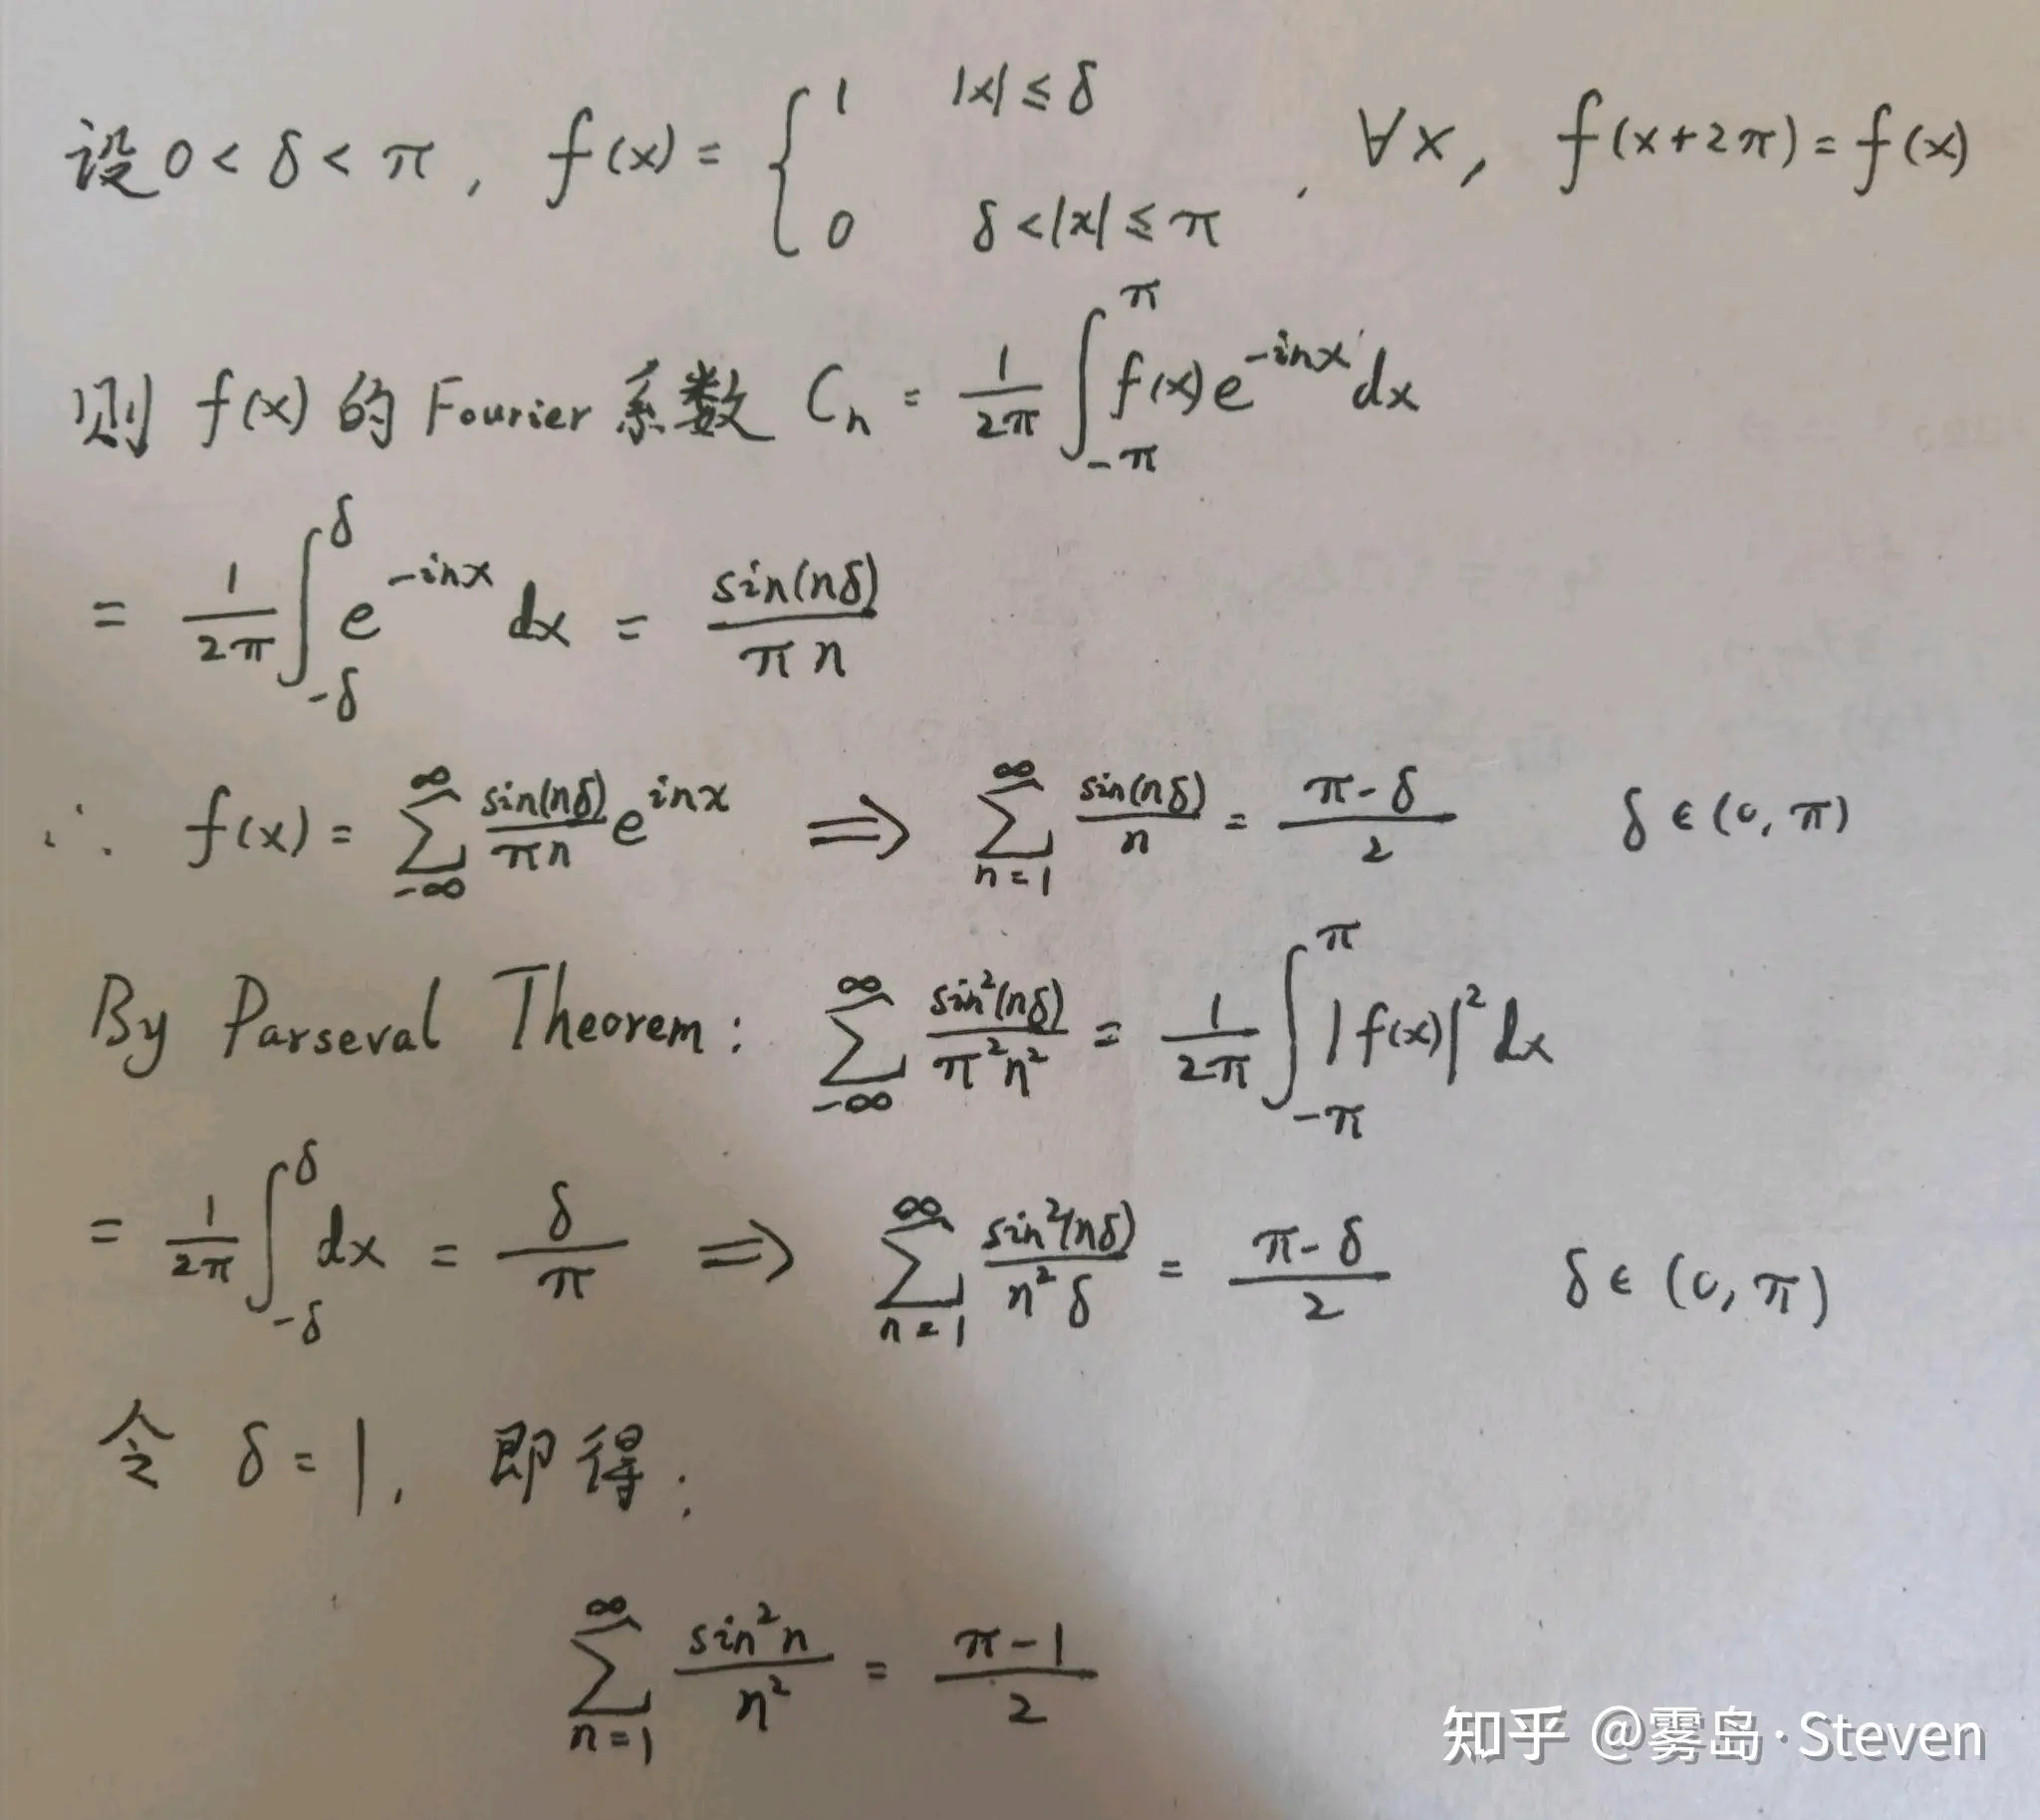 设 0 < δ < π, f(x) = { 1 |x| ≤ δ ; 0 δ < |x| ≤ π , ∀x, f(x+2π) = f(x)
则 f(x) 的 Fourier 系数 Cₙ = 1/2π ∫_{-π}^{π} f(x) e^{-inx} dx
= 1/2π ∫_{-δ}^{δ} e^{-inx} dx = sin(nδ)/πn
∴ f(x) = ∑_{-∞}^{∞} sin(nδ)/πn e^{inx} ⟹ ∑_{n=1}^{∞} sin(nδ)/n = (π-δ)/2 δ ∈ (0, π)
By Parseval Theorem: ∑_{-∞}^{∞} sin²(nδ)/π²n² = 1/2π ∫_{-π}^{π} |f(x)|² dx
= 1/2π ∫_{-δ}^{δ} dx = δ/π ⟹ ∑_{n=1}^{∞} sin²(nδ)/n²δ = (π-δ)/2 δ ∈ (0, π)
令 δ = 1, 即得:
∑_{n=1}^{∞} sin²n/n² = (π-1)/2
知乎 @雾岛·Steven